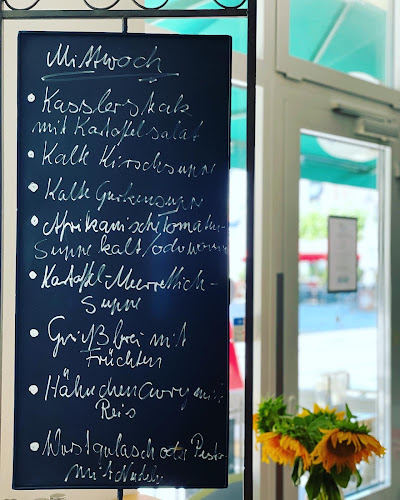 Mittwoch
• Kasslersteak
mit Kartoffelsalat
• Kalte Kirschsuppe
• Kalte Gurkensuppe
• Afrikanische Tomaten-
Suppe kalt/oder warm
• Kartoffel-Meerrettich-
Suppe
• Grießbrei mit
Früchten
• Hähnchencurry mit
Reis
• Wurstgulasch oder Pesto
mit Nudeln